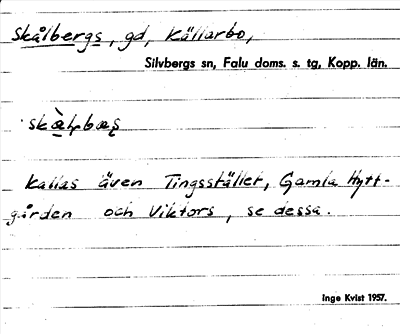 Skålbergs, gd, Källarbo,
Silvbergs sn, Falu doms. s. tg, Kopp. län.
Kallas även Tingsstället, Gamla Hytt-
gården och Viktors, se dessa.
Inge Kvist 1957.